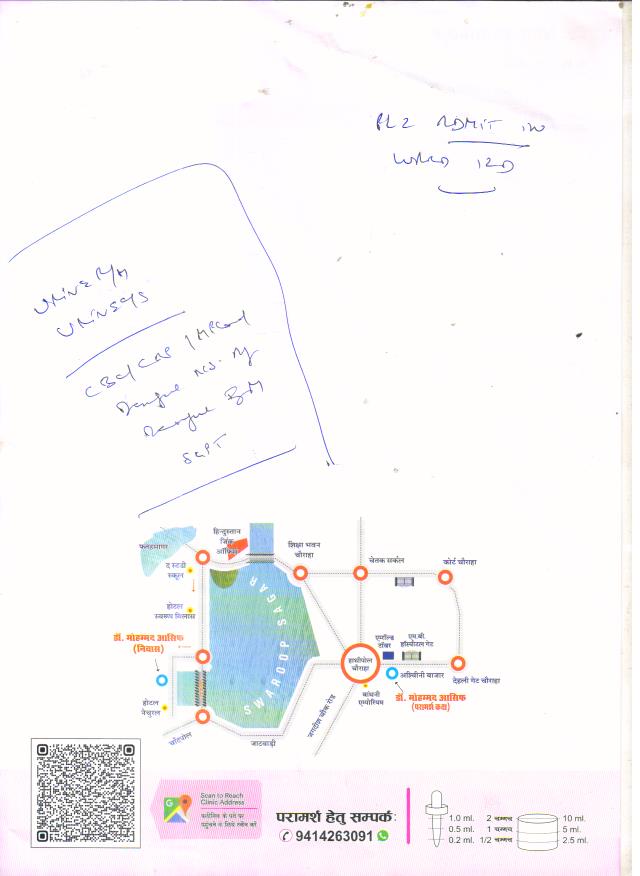 PLZ ADMIT IN
WARD 12D
URINE R/M
URINE C/S
CBC/
Dengue NS1 Ag
Dengue IgM
SGPT
फतेहसागर
हिन्दुस्तान
जिंक
ऑफिस
शिक्षा भवन
चौराहा
चेतक सर्कल
कोर्ट चौराहा
द स्टडी
स्कूल
होटल
स्वरूप विलास
SWAROOP SAGAR
डॉ. मोहम्मद आसिफ
(निवास)
होटल
नेचुरल
चाँदपोल
जाटवाड़ी
जगदीश चौक रोड
हाथीपोल
चौराहा
एमरॉल्ड
टॉवर
एम.बी.
हॉस्पीटल गेट
अश्विनी बाजार
देहली गेट चौराहा
बांधनी
एम्पोरियम
डॉ. मोहम्मद आसिफ
(परामर्श कक्ष)
Scan to Reach
Clinic Address
क्लीनिक के पते पर
पहुंचने के लिये स्कैन करें
परामर्श हेतु सम्पर्क:
9414263091
1.0 ml. 2 चम्मच 10 ml.
0.5 ml. 1 चम्मच 5 ml.
0.2 ml. 1/2 चम्मच 2.5 ml.